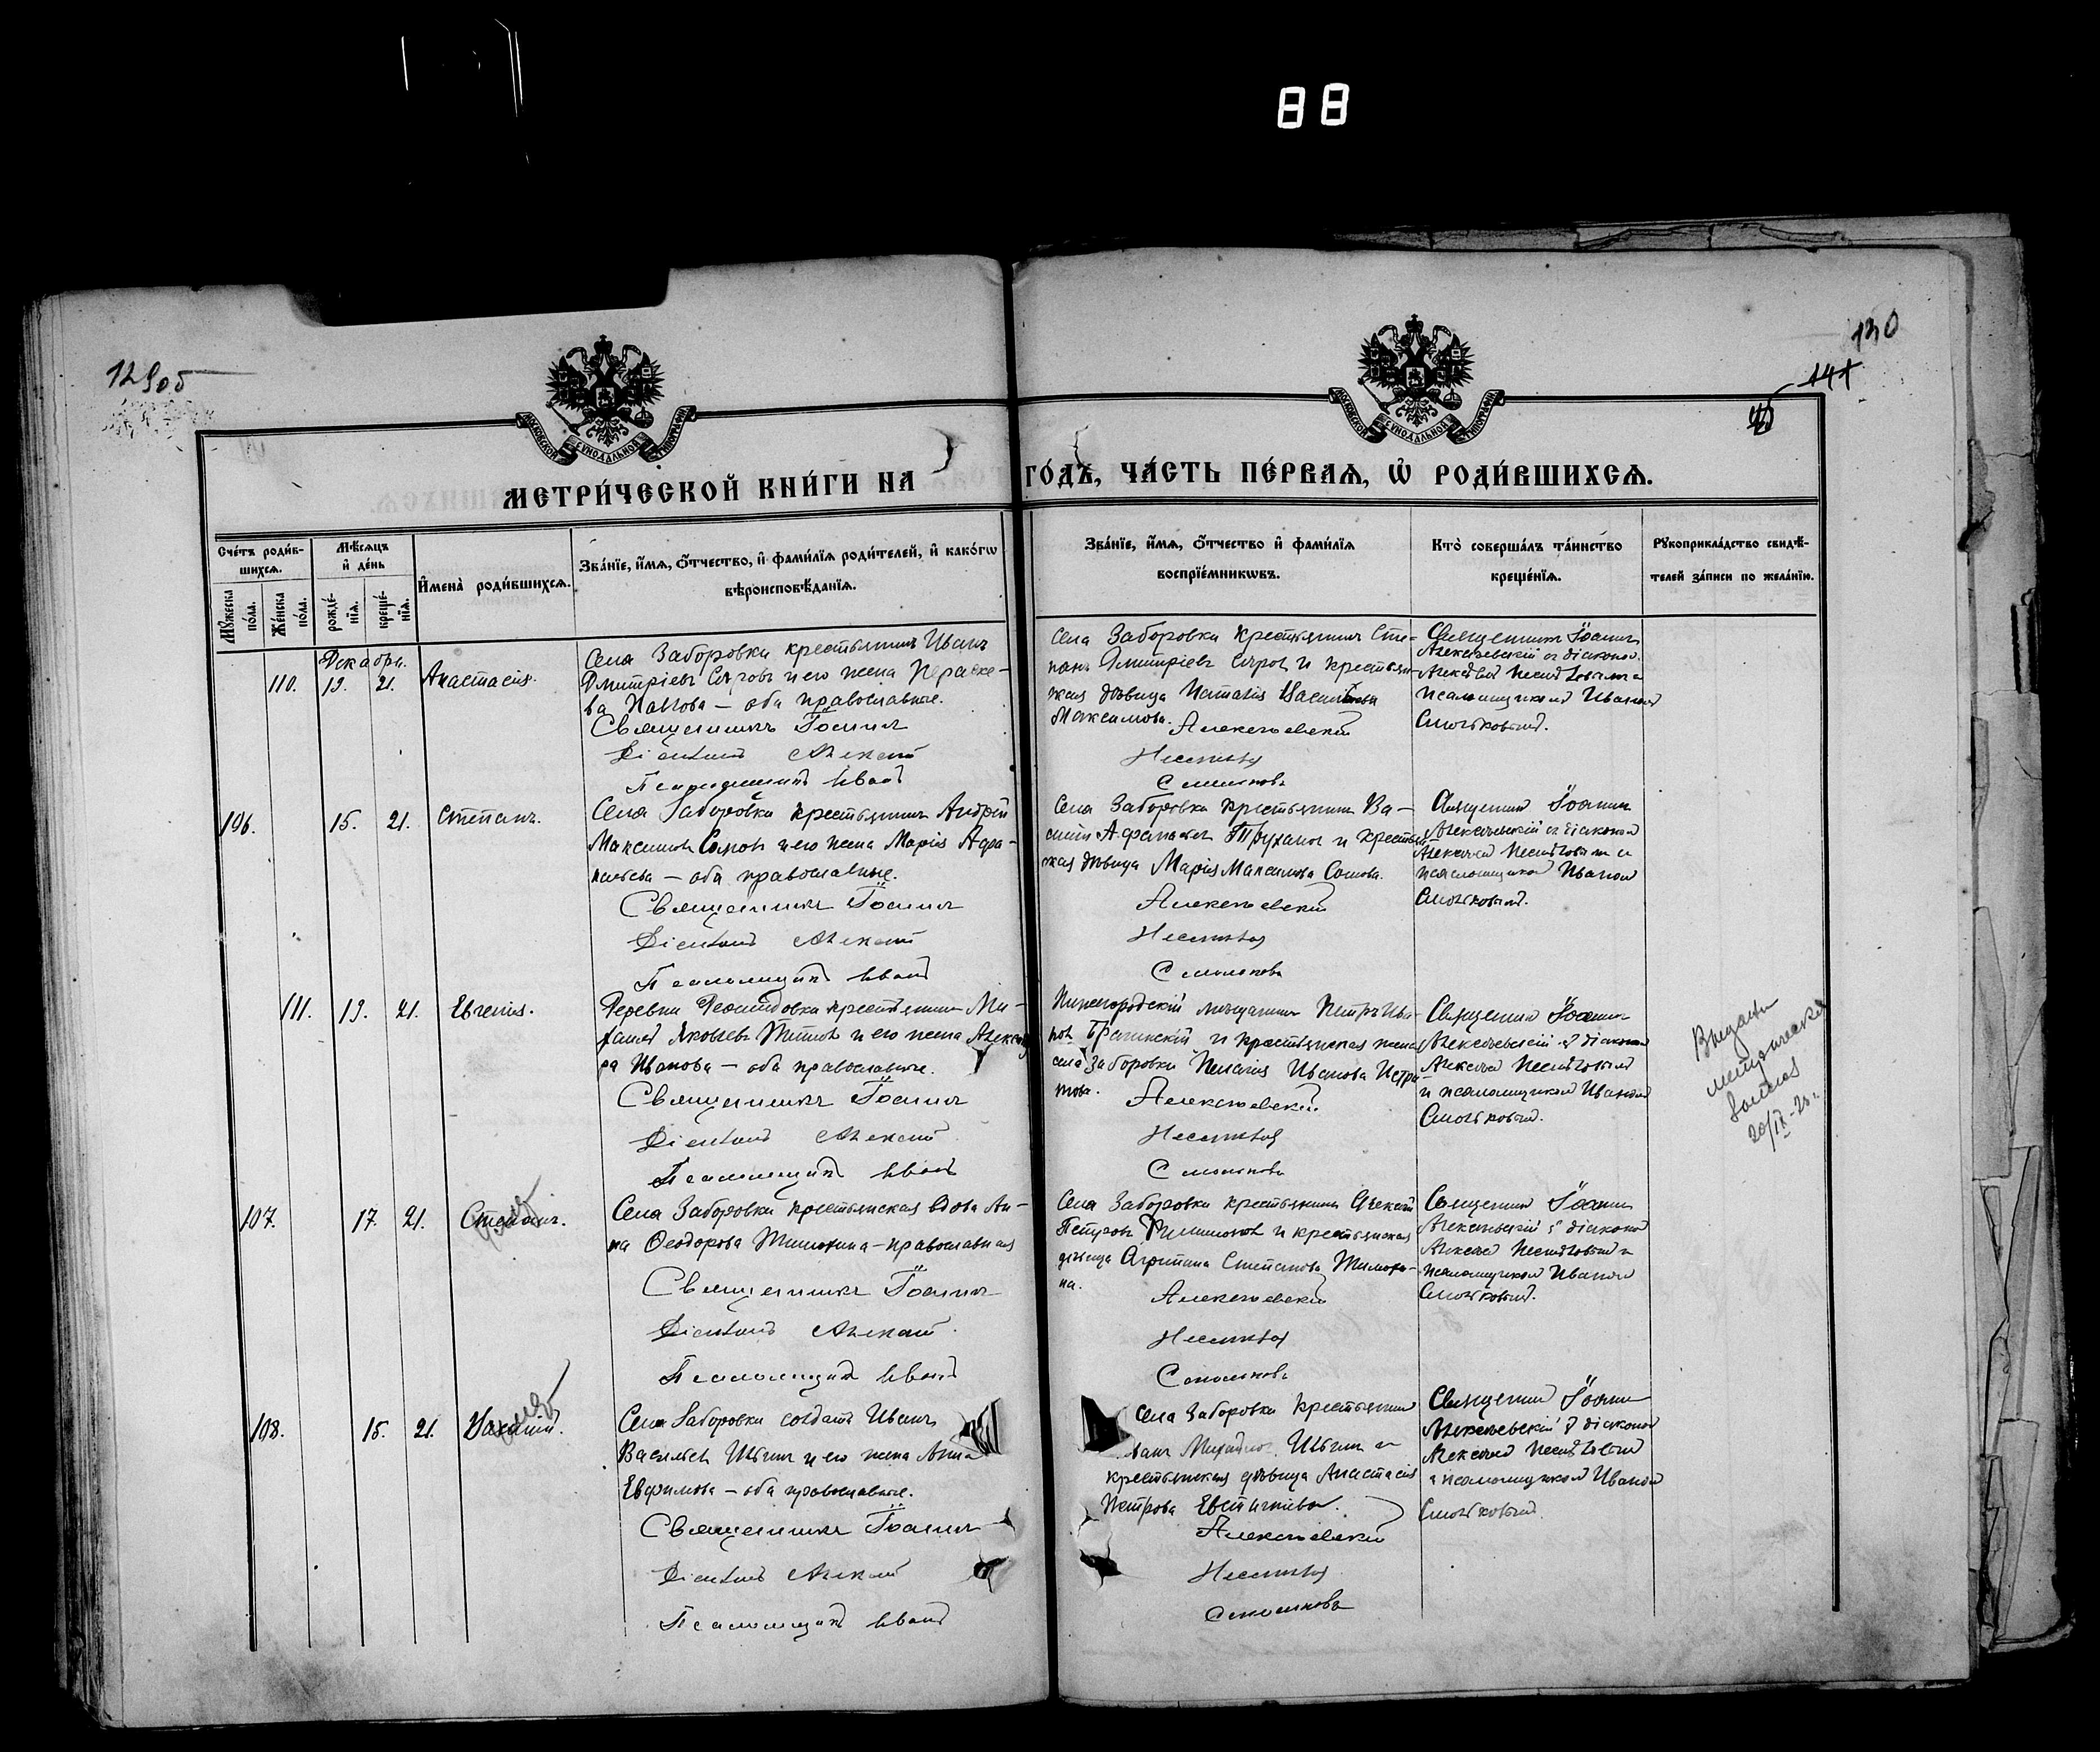 88
129об
130
141
МОСКОВСКОЙ СѴНОДАЛЬНОЙ ТИПОГРАФІИ
МОСКОВСКОЙ СѴНОДАЛЬНОЙ ТИПОГРАФІИ
МЕТРИ́ЧЕСКОЙ КНИ́ГИ НА ГО́ДЪ, ЧА́СТЬ ПЕ́РВАЯ, Ѡ҆ РОДИ́ВШИХСЯ.
Сче́тъ роди́в-
шихся.
Мꙋ́жеска по́ла.
Же́нска по́ла.
Мѣ́сяцъ и҆ де́нь
рожде́-
нїя.
креще́-
нїя.
И҆мена̀ роди́вшихся.
Зва́нїе, и҆́мя, ѻ҆́тчество, и҆ фамѝлїя роди́телей, и҆ како́гѡ
вѣроисповѣ́данїя.
Зва́нїе, и҆́мя, ѻ҆́тчество и҆ фами́лїя
воспрїе́мникѡвъ.
Кто̀ соверша́лъ та́инство
креще́нїя.
Рꙋкоприкла́дство свидѣ́-
телей за́писи по жела́нїю.
Декабрь.
110. 19. 21. Анастасія.
Села Заборовки крестьянинъ Иванъ
Дмитріевъ Сѣровъ и его жена Параске-
ва Павлова — оба православные.
Священникъ Іоаннъ
Діаконъ Алексѣй
Псаломщикъ Иванъ
Села Заборовки крестьянинъ Сте-
панъ Дмитріевъ Сѣровъ и крестьян-
ская дѣвица Наталія
Максимова.
Алексѣевскій
Несмѣловъ
Смольковъ
Священникъ Іоаннъ
Алексѣевскій съ діакономъ
Алексѣемъ Несмѣловымъ и
псаломщикомъ Иваномъ
Смольковымъ.
106. 15. 21. Степанъ.
Села Заборовки крестьянинъ Андрей
Максимовъ Сомовъ и его жена Марія Афа-
насьева — оба православные.
Священникъ Іоаннъ
Діаконъ Алексѣй
Псаломщикъ Иванъ
Села Заборовки крестьянинъ Ва-
силій Афанасьевъ Трухановъ и крестьян-
ская дѣвица Марія Максимова Сомова.
Алексѣевскій
Несмѣловъ
Смольковъ
Священникъ Іоаннъ
Алексѣевскій съ діакономъ
Алексѣемъ Несмѣловымъ и
псаломщикомъ Иваномъ
Смольковымъ.
111. 19. 21. Евгенія.
Деревни крестьянинъ Ми-
хаилъ Яковлевъ Титовъ и его жена Александ-
ра Иванова — оба православные.
Священникъ Іоаннъ
Діаконъ Алексѣй
Псаломщикъ Иванъ
Нижегородскій мѣщанинъ Петръ Ива-
новъ и крестьянская жена
села Заборовки Пелагія Иванова
Алексѣевскій
Несмѣловъ
Смольковъ
Священникъ Іоаннъ
Алексѣевскій съ діакономъ
Алексѣемъ Несмѣловымъ
и псаломщикомъ Иваномъ
Смольковымъ.
Выдана
метрическая
20/IX-25г.
107. 17. 21. Степанъ.
Села Заборовки крестьянская вдова Ан-
на Ѳеодорова Тимохина — православная
Священникъ Іоаннъ
Діаконъ Алексѣй
Псаломщикъ Иванъ
Села Заборовки крестьянинъ Алексѣй
Петровъ Филимоновъ и крестьянская
дѣвица Агрипина Степанова Тимохи-
на.
Алексѣевскій
Несмѣловъ
Смольковъ
Священникъ Іоаннъ
Алексѣевскій съ діакономъ
Алексѣемъ Несмѣловымъ и
псаломщикомъ Иваномъ
Смольковымъ.
108. 15. 21.
Села Заборовки солдатъ Иванъ
Васильевъ Ильинъ и его жена Анна
Евфимова — оба православные.
Священникъ Іоаннъ
Діаконъ Алексѣй
Псаломщикъ Иванъ
Села Заборовки крестьянинъ
Ильинъ и
крестьянская дѣвица Анастасія
Петрова Евстигнѣева.
Алексѣевскій
Несмѣловъ
Смольковъ
Священникъ Іоаннъ
Алексѣевскій съ діакономъ
Алексѣемъ Несмѣловымъ
и псаломщикомъ Иваномъ
Смольковымъ.